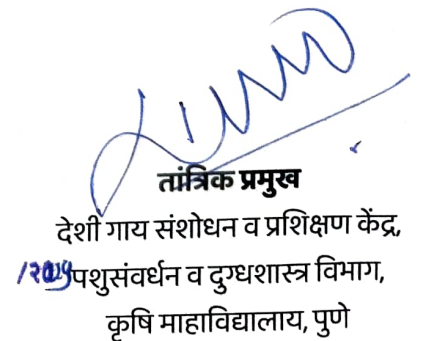 तांत्रिक प्रमुख
देशी गाय संशोधन व प्रशिक्षण केंद्र,
पशुसंवर्धन व दुग्धशास्त्र विभाग,
कृषि माहाविद्यालय, पुणे